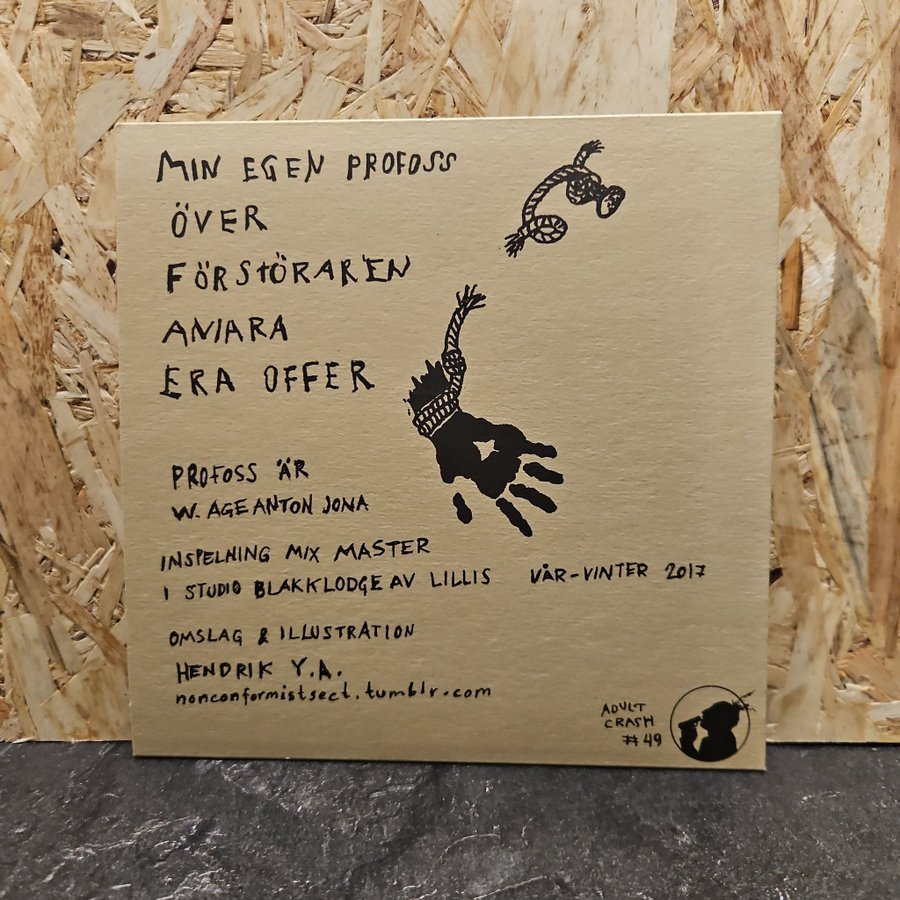 MIN EGEN PROFOSS
ÖVER
FÖRSTÖRAREN
ANIARA
ERA OFFER
PROFOSS ÄR
W. AGE ANTON JONA
INSPELNING MIX MASTER
I STUDIO BLAKKLODGE AV LILLIS VÅR-VINTER 2017
OMSLAG & ILLUSTRATION
HENDRIK Y.A.
nonconformistsect.tumblr.com
ADULT
CRASH
#49